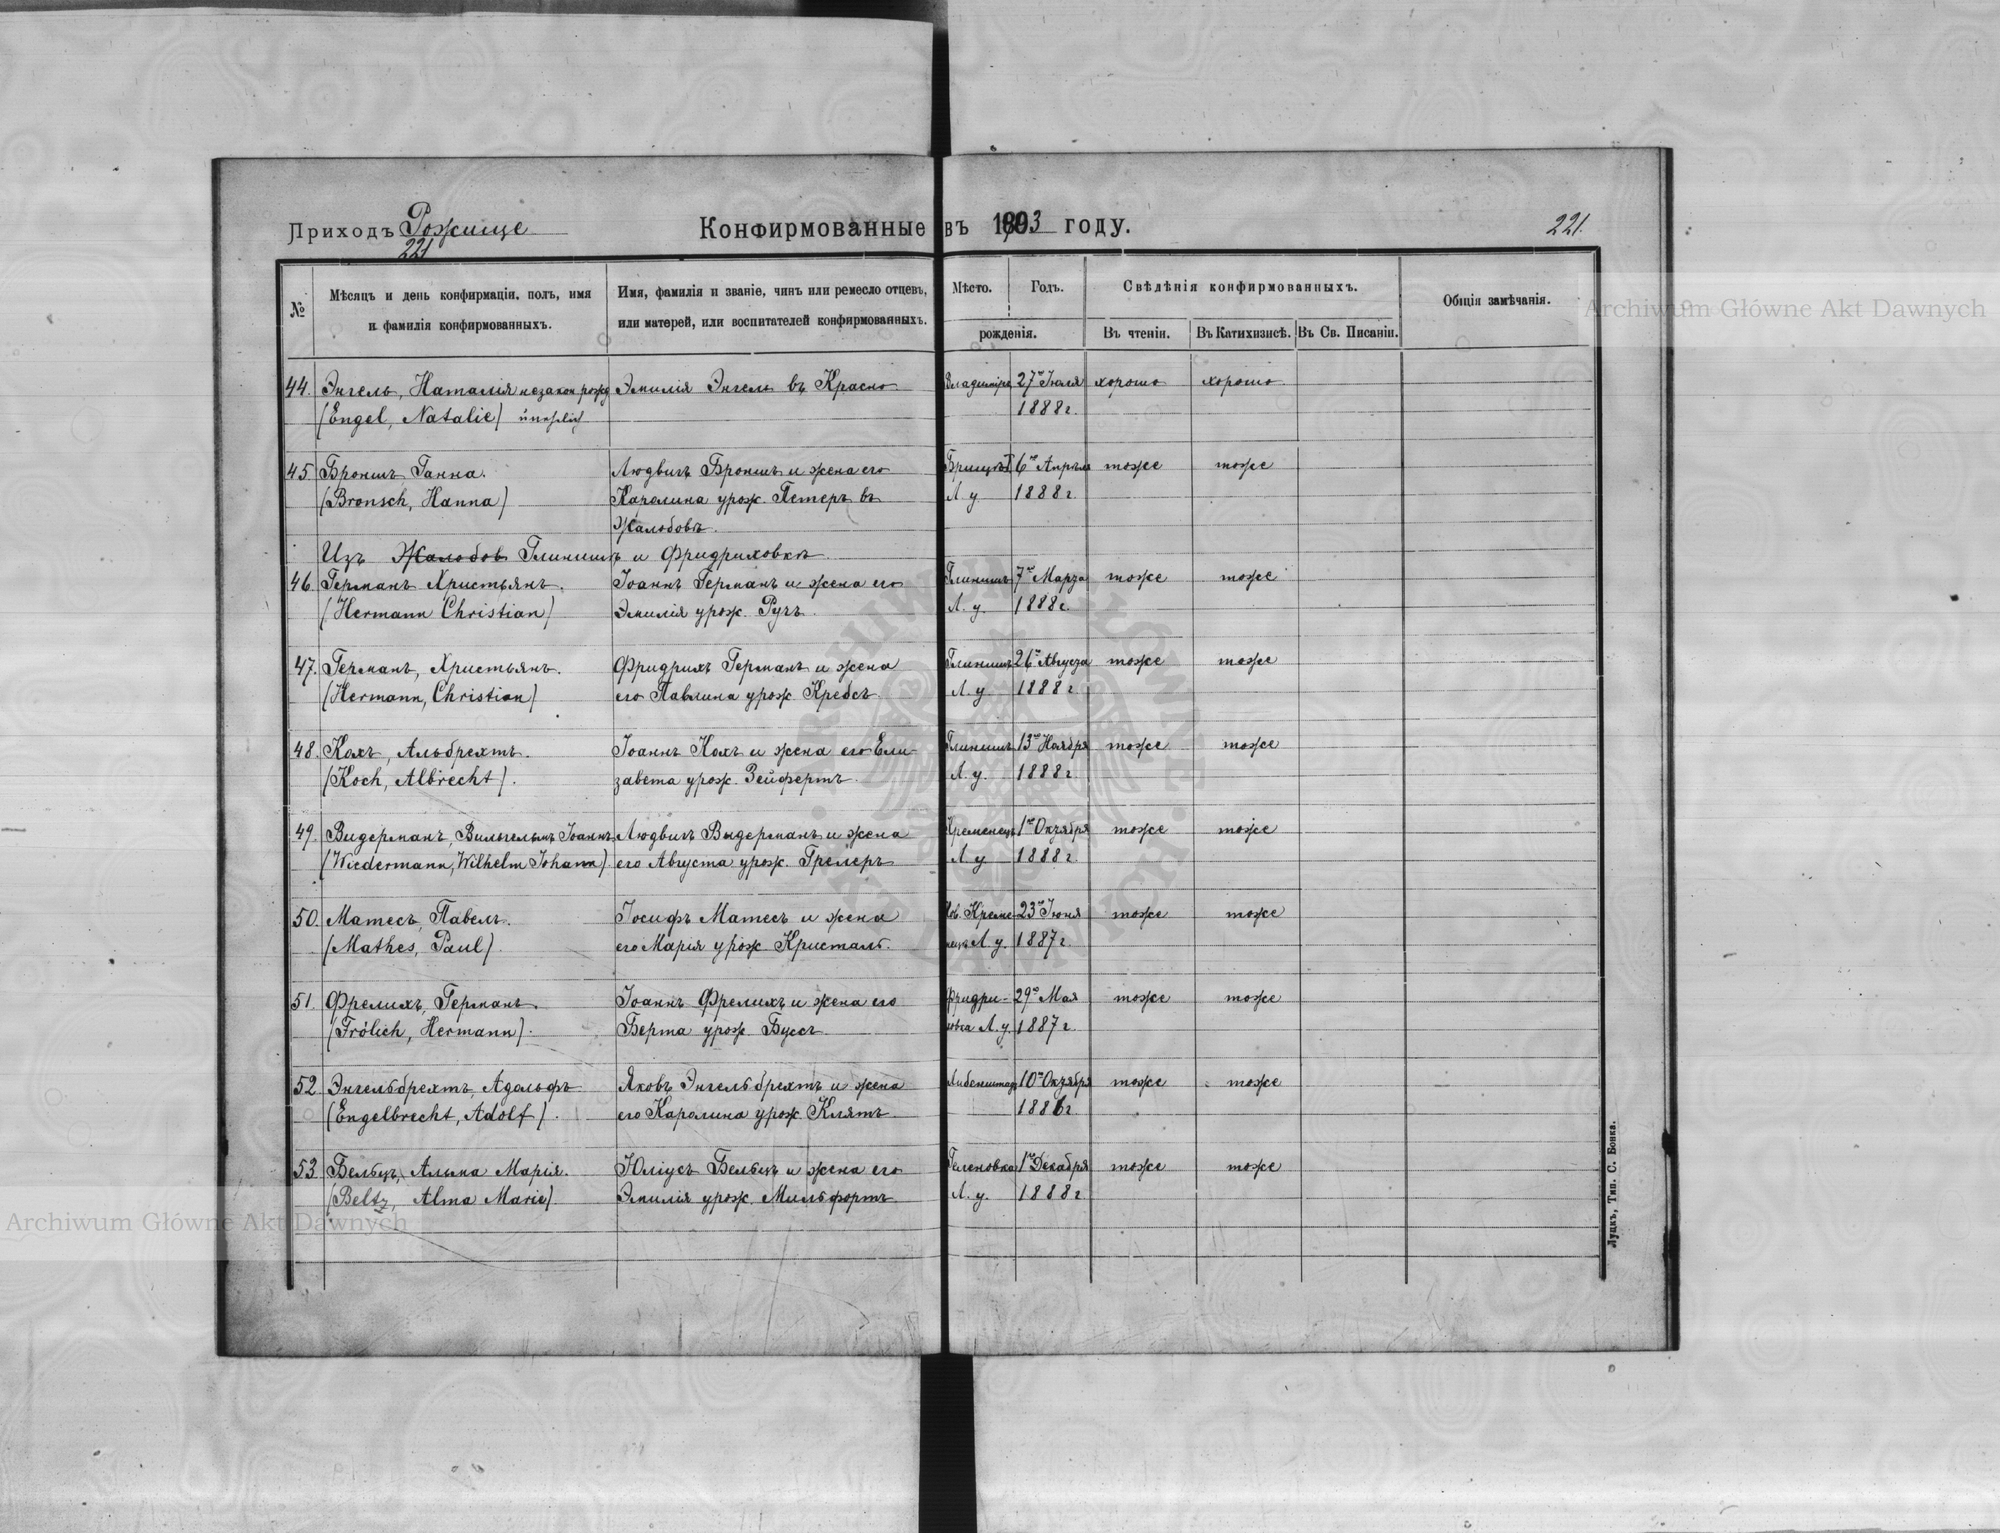 Приходъ Рожище
221
Конфирмованные въ 1903 году.
221.
№
Мѣсяцъ и день конфирмаціи, полъ, имя
и фамилія конфирмованныхъ.
Имя, фамилія и званіе, чинъ или ремесло отцевъ,
или матерей, или воспитателей конфирмованныхъ.
Мѣсто.
Годъ.
рожденія.
Свѣдѣнія конфирмованныхъ.
Въ чтеніи.
Въ Катихизисѣ.
Въ Св. Писаніи.
Общія замѣчанія.
44. Энгель, Наталія незакон рожд Эмилія Энгель въ Красно Владиміръ 27го Іюля хорошо хорошо
(Engel, Natalie) unehlich 1888 г.
45. Броншъ Ганна. Людвигъ Броншъ и жена его 6го Апрѣля тоже тоже
(Bronsch, Hanna) Каролина урож. Петеръ въ Л. у. 1888 г
Жалобовѣ.
Изъ Жалобов Глинишъ и Фридриховки
46. Германъ Христьянъ. Іоаннъ Германъ и жена его Глинишъ 7го Марта тоже тоже
(Hermann Christian) Эмилія урож. Ручъ Л. у. 1888 г.
47. Германъ, Христьянъ. Фридрихъ Германъ и жена Глинишъ 26го Августа тоже тоже
(Hermann, Christian) его Павлина урож. Кребсъ Л. у. 1888 г
48. Кохъ, Альбрехтъ. Іоаннъ Кохъ и жена его Ели- Глинишъ 13го Ноября тоже тоже
(Koch, Albrecht). завета урож. Зейфертъ. Л. у. 1888 г
49. Видерманъ, Вильгельмъ Іоаннъ Людвигъ Выдерманъ и жена Кременецъ 1го Октября тоже тоже
(Wiedermann, Wilhelm Johann) его Августа урож. Грелеръ Л. у. 1888 г.
50. Матесъ, Павелъ. Іосифъ Матесъ и жена Нов. Креме- 23го Іюня тоже тоже
(Mathes, Paul). его Марія урож. Кристаль. нецъ Л. у. 1887 г.
51. Фрелихъ, Германъ. Іоаннъ Фрелихъ и жена его Фридри- 29го Мая тоже тоже
(Frölich, Hermann). Берта урож. Буссъ. ховка Л. у. 1887 г.
52 Энгельбрехтъ, Адольфъ Яковъ Энгельбрехтъ и жена Либенштадт 10го Октября тоже тоже
(Engelbrecht, Adolf). его Каролина урож. Клятъ 1886 г
53. Бельцъ, Альма Марія. Юліусъ Бельцъ и жена его Геленовка 1го Декабря тоже тоже
(Beltz, Alma Marie) Эмилія урож. Мильфортъ Л. у. 1888 г
Луцкъ, Тип. С. Бонка.
Archiwum Główne Akt Dawnych
Archiwum Główne Akt Dawnych
ARCHIWUM GŁÓWNE AKT DAWNYCH